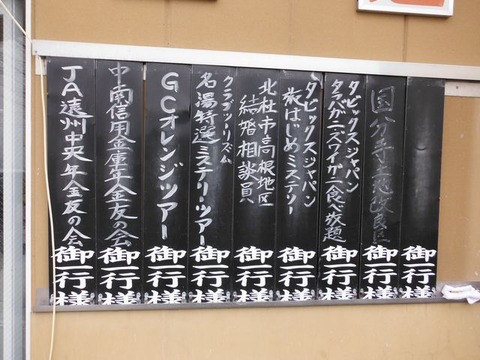 御一行様
国分寺土地改良区 御一行様
タビックスジャパン
タラバガニ・ズワイガニ食べ放題 御一行様
タビックスジャパン
旅はじめミステリー 御一行様
北杜市高根地区
結婚相談員 御一行様
クラブツーリズム
名湯特選ミステリーツアー 御一行様
GCオレンジツアー 御一行様
中南信用金庫年金友の会 御一行様
JA遠州中央年金友の会 御一行様